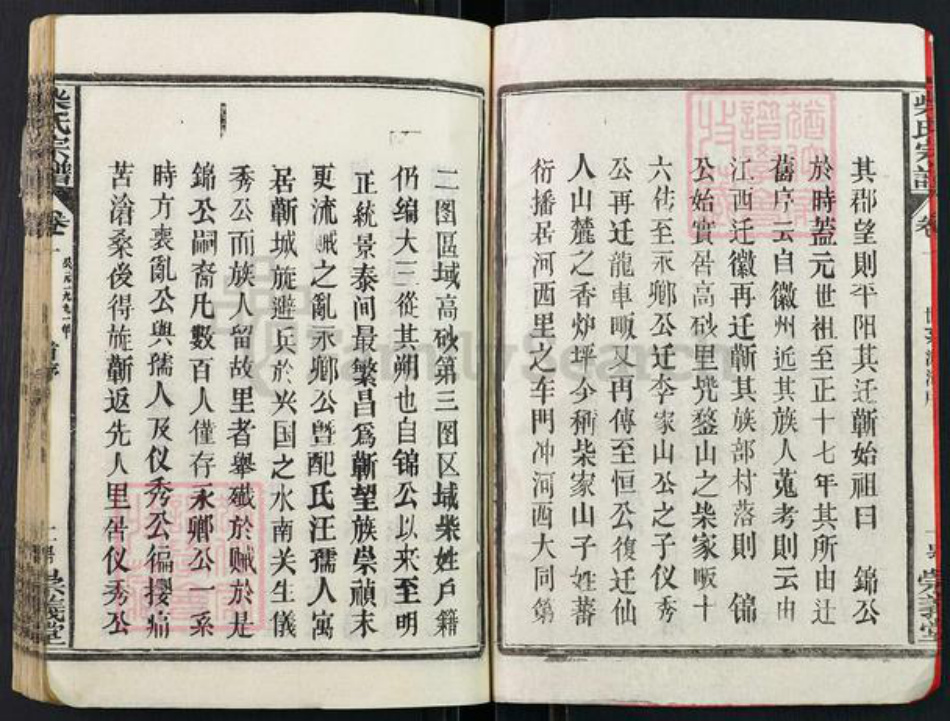 柴氏宗譜
卷一
其郡望則平阳其迁蘄始祖曰 錦公
於時蓋元世祖至正十七年其所由迁
舊序云自徽州近其族人蒐考則云由
江西迁徽再迁蘄其族部村落則 锦
公始實居高砂里凭鍪山之柴家畈十
六传至永卿公迁李家山公之子仪秀
公再迁龍車畈又再傳至恒公復迁仙
人山麓之香炉坪今稱柴家山子姓蕃
衍播居河西里之车門冲河西大同第
崇義堂
二图區域高砂第三图区域柴姓户籍
仍编大三從其朔也自锦公以来至明
正統景泰间最繁昌爲蘄望族崇禎末
更流贼之亂永卿公暨配氏汪孺人寓
居蘄城旋避兵於兴国之水南关生儀
秀公而族人留故里者舉殲於贼於是
錦公嗣裔凡數百人僅存永卿公一系
時方喪亂公與孺人及仪秀公徧攖痛
苦滄桑後得旋蘄返先人里居仪秀公
柴氏宗譜
卷一
公元一九九一年
二
崇義堂
FamilySearch